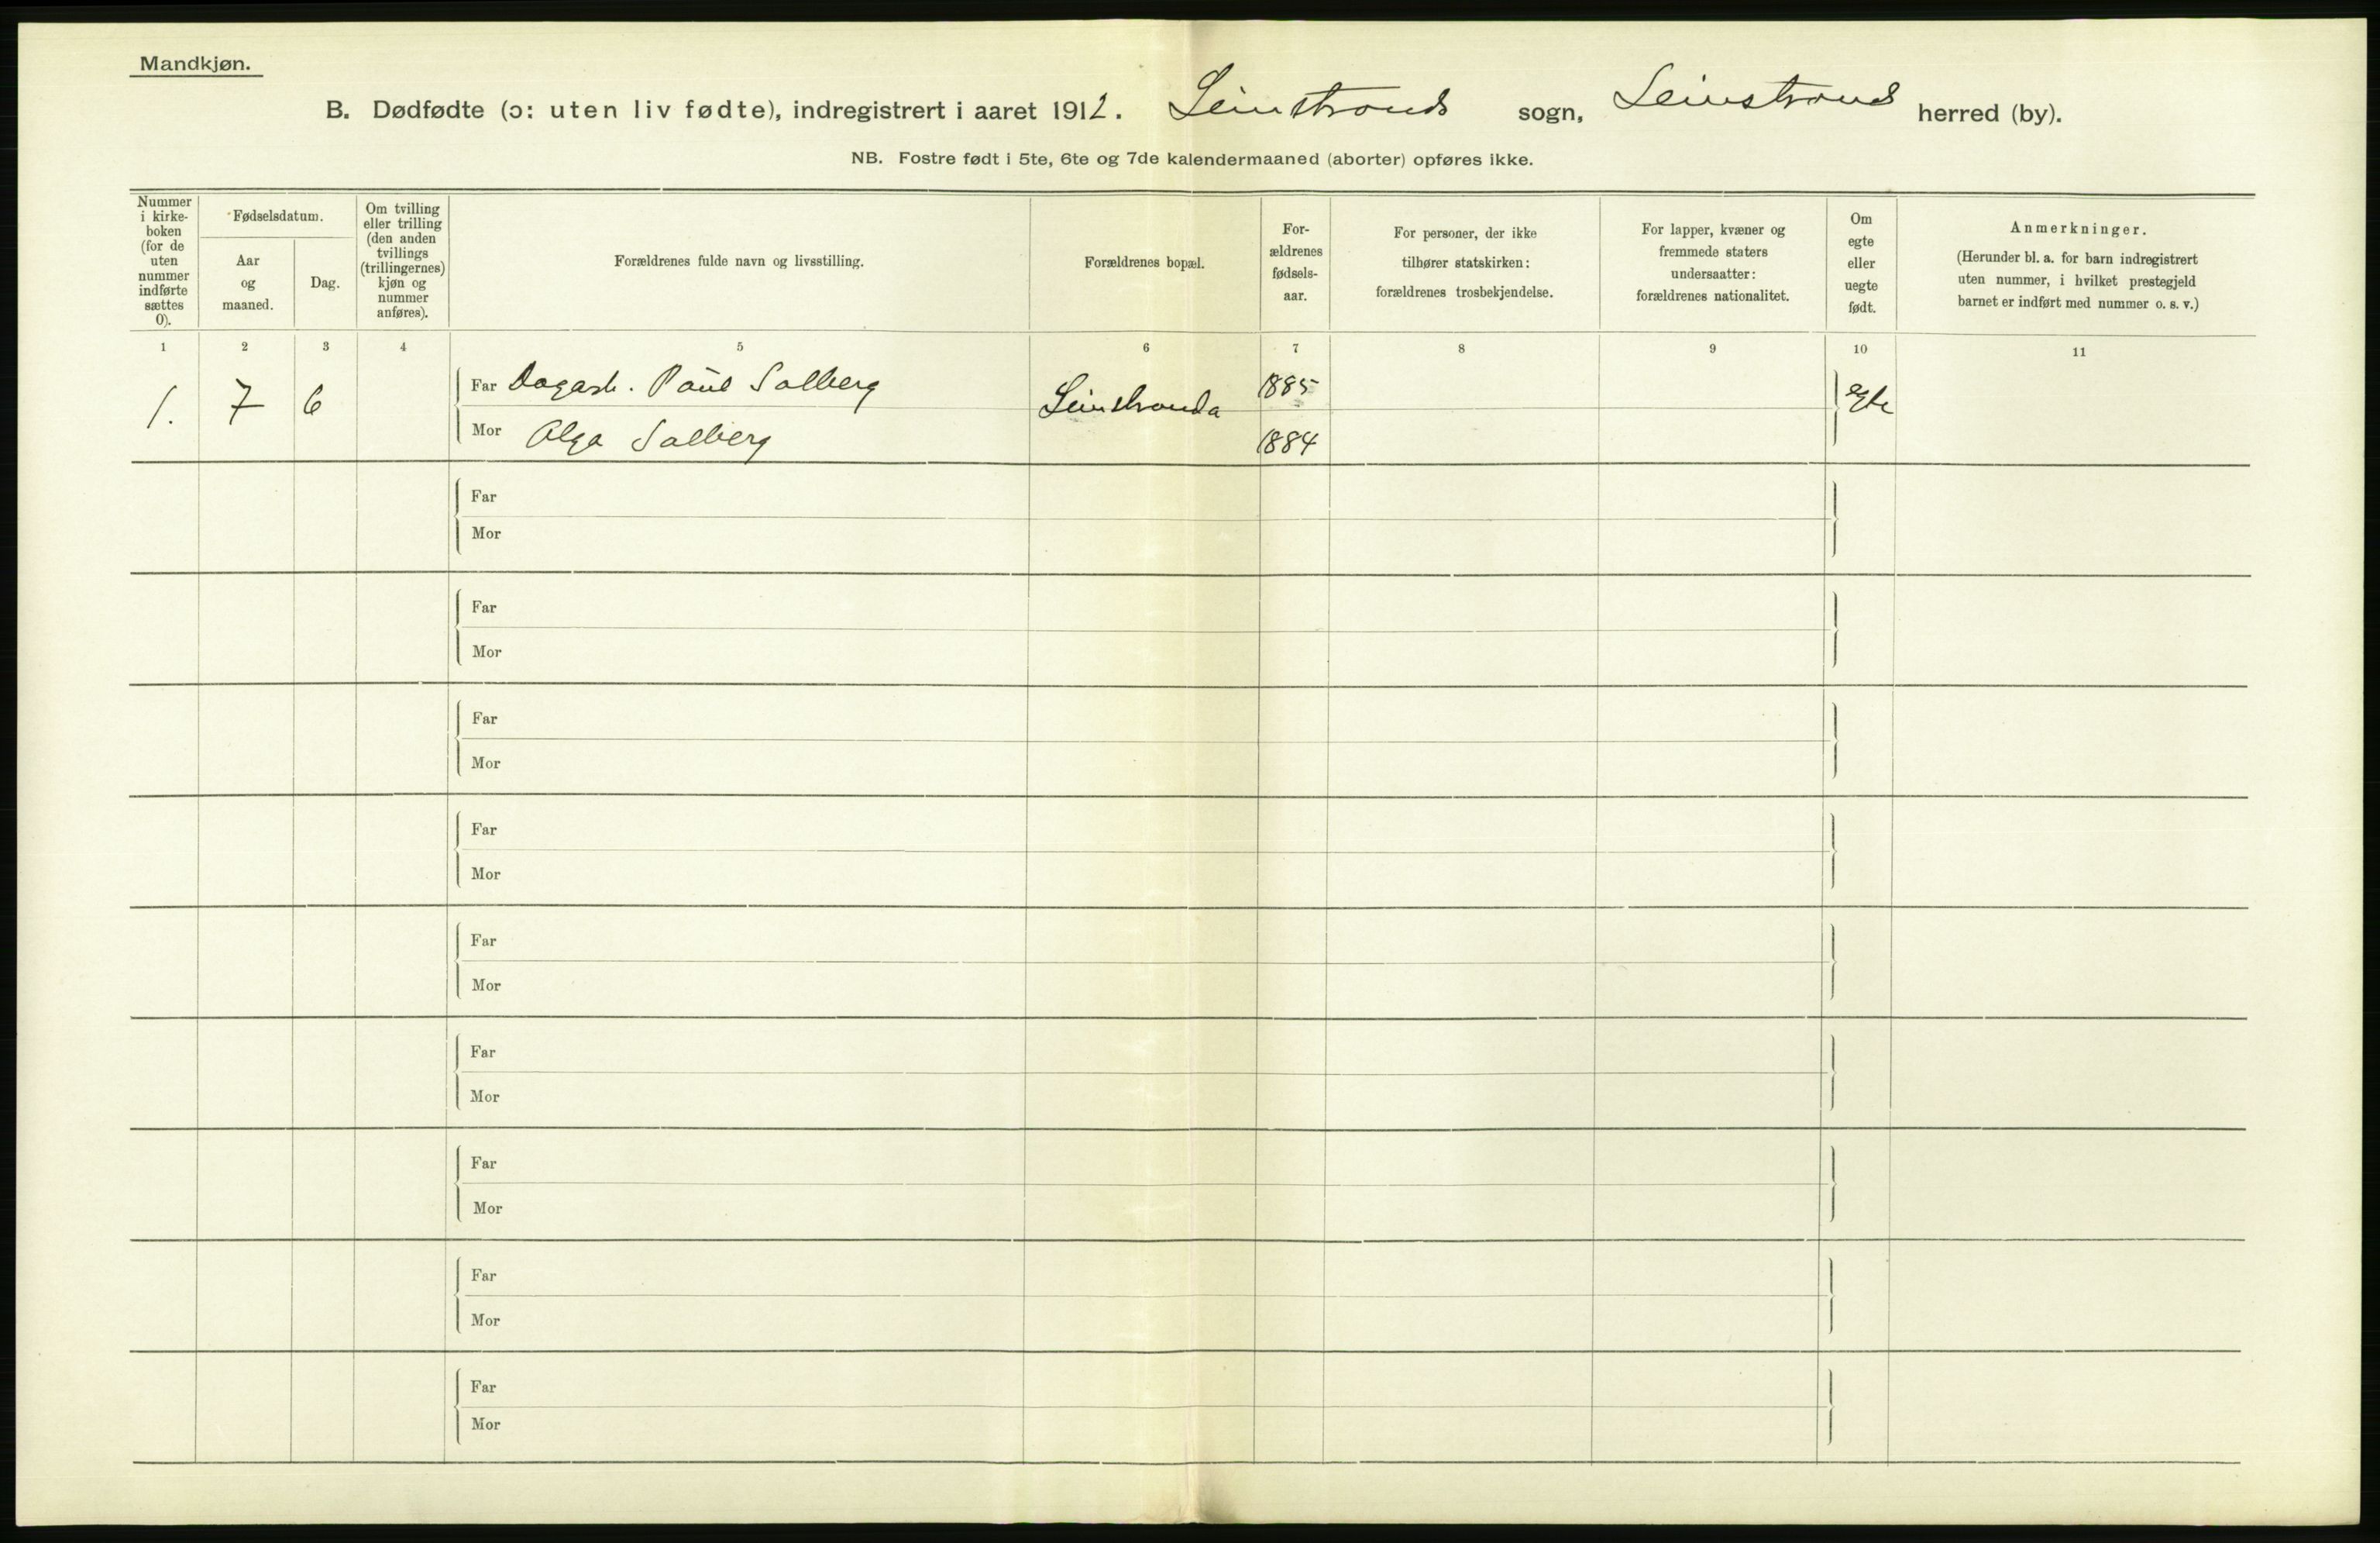 Mandkjøn.
B. Dødfødte (ɔ: uten liv fødte), indregistrert i aaret 1912. Leinstrands sogn, Leinstrand herred (by).
NB. Fostre født i 5te, 6te og 7de kalendermaaned (aborter) opføres ikke.
Nummer
i kirke-
boken
(for de
uten
nummer
indførte
sættes
0).
Fødselsdatum.
Aar
og
maaned.
Dag.
Om tvilling
eller trilling
(den anden
tvillings
(trillingernes)
kjøn og
nummer
anføres).
Forældrenes fulde navn og livsstilling.
Forældrenes bopæl.
For-
ældrenes
fødsels-
aar.
For personer, der ikke
tilhører statskirken:
forældrenes trosbekjendelse.
For lapper, kvæner og
fremmede staters
undersaatter:
forældrenes nationalitet.
Om
egte
eller
uegte
født.
Anmerkninger.
(Herunder bl. a. for barn indregistrert
uten nummer, i hvilket prestegjeld
barnet er indført med nummer o. s. v.)
1 2 3 4 5 6 7 8 9 10 11
1. 7 6
Far Dagarb. Paul Solberg Leinstranda 1885 Egte
Mor Olga Solberg 1884
Far
Mor
Far
Mor
Far
Mor
Far
Mor
Far
Mor
Far
Mor
Far
Mor
Far
Mor
Far
Mor